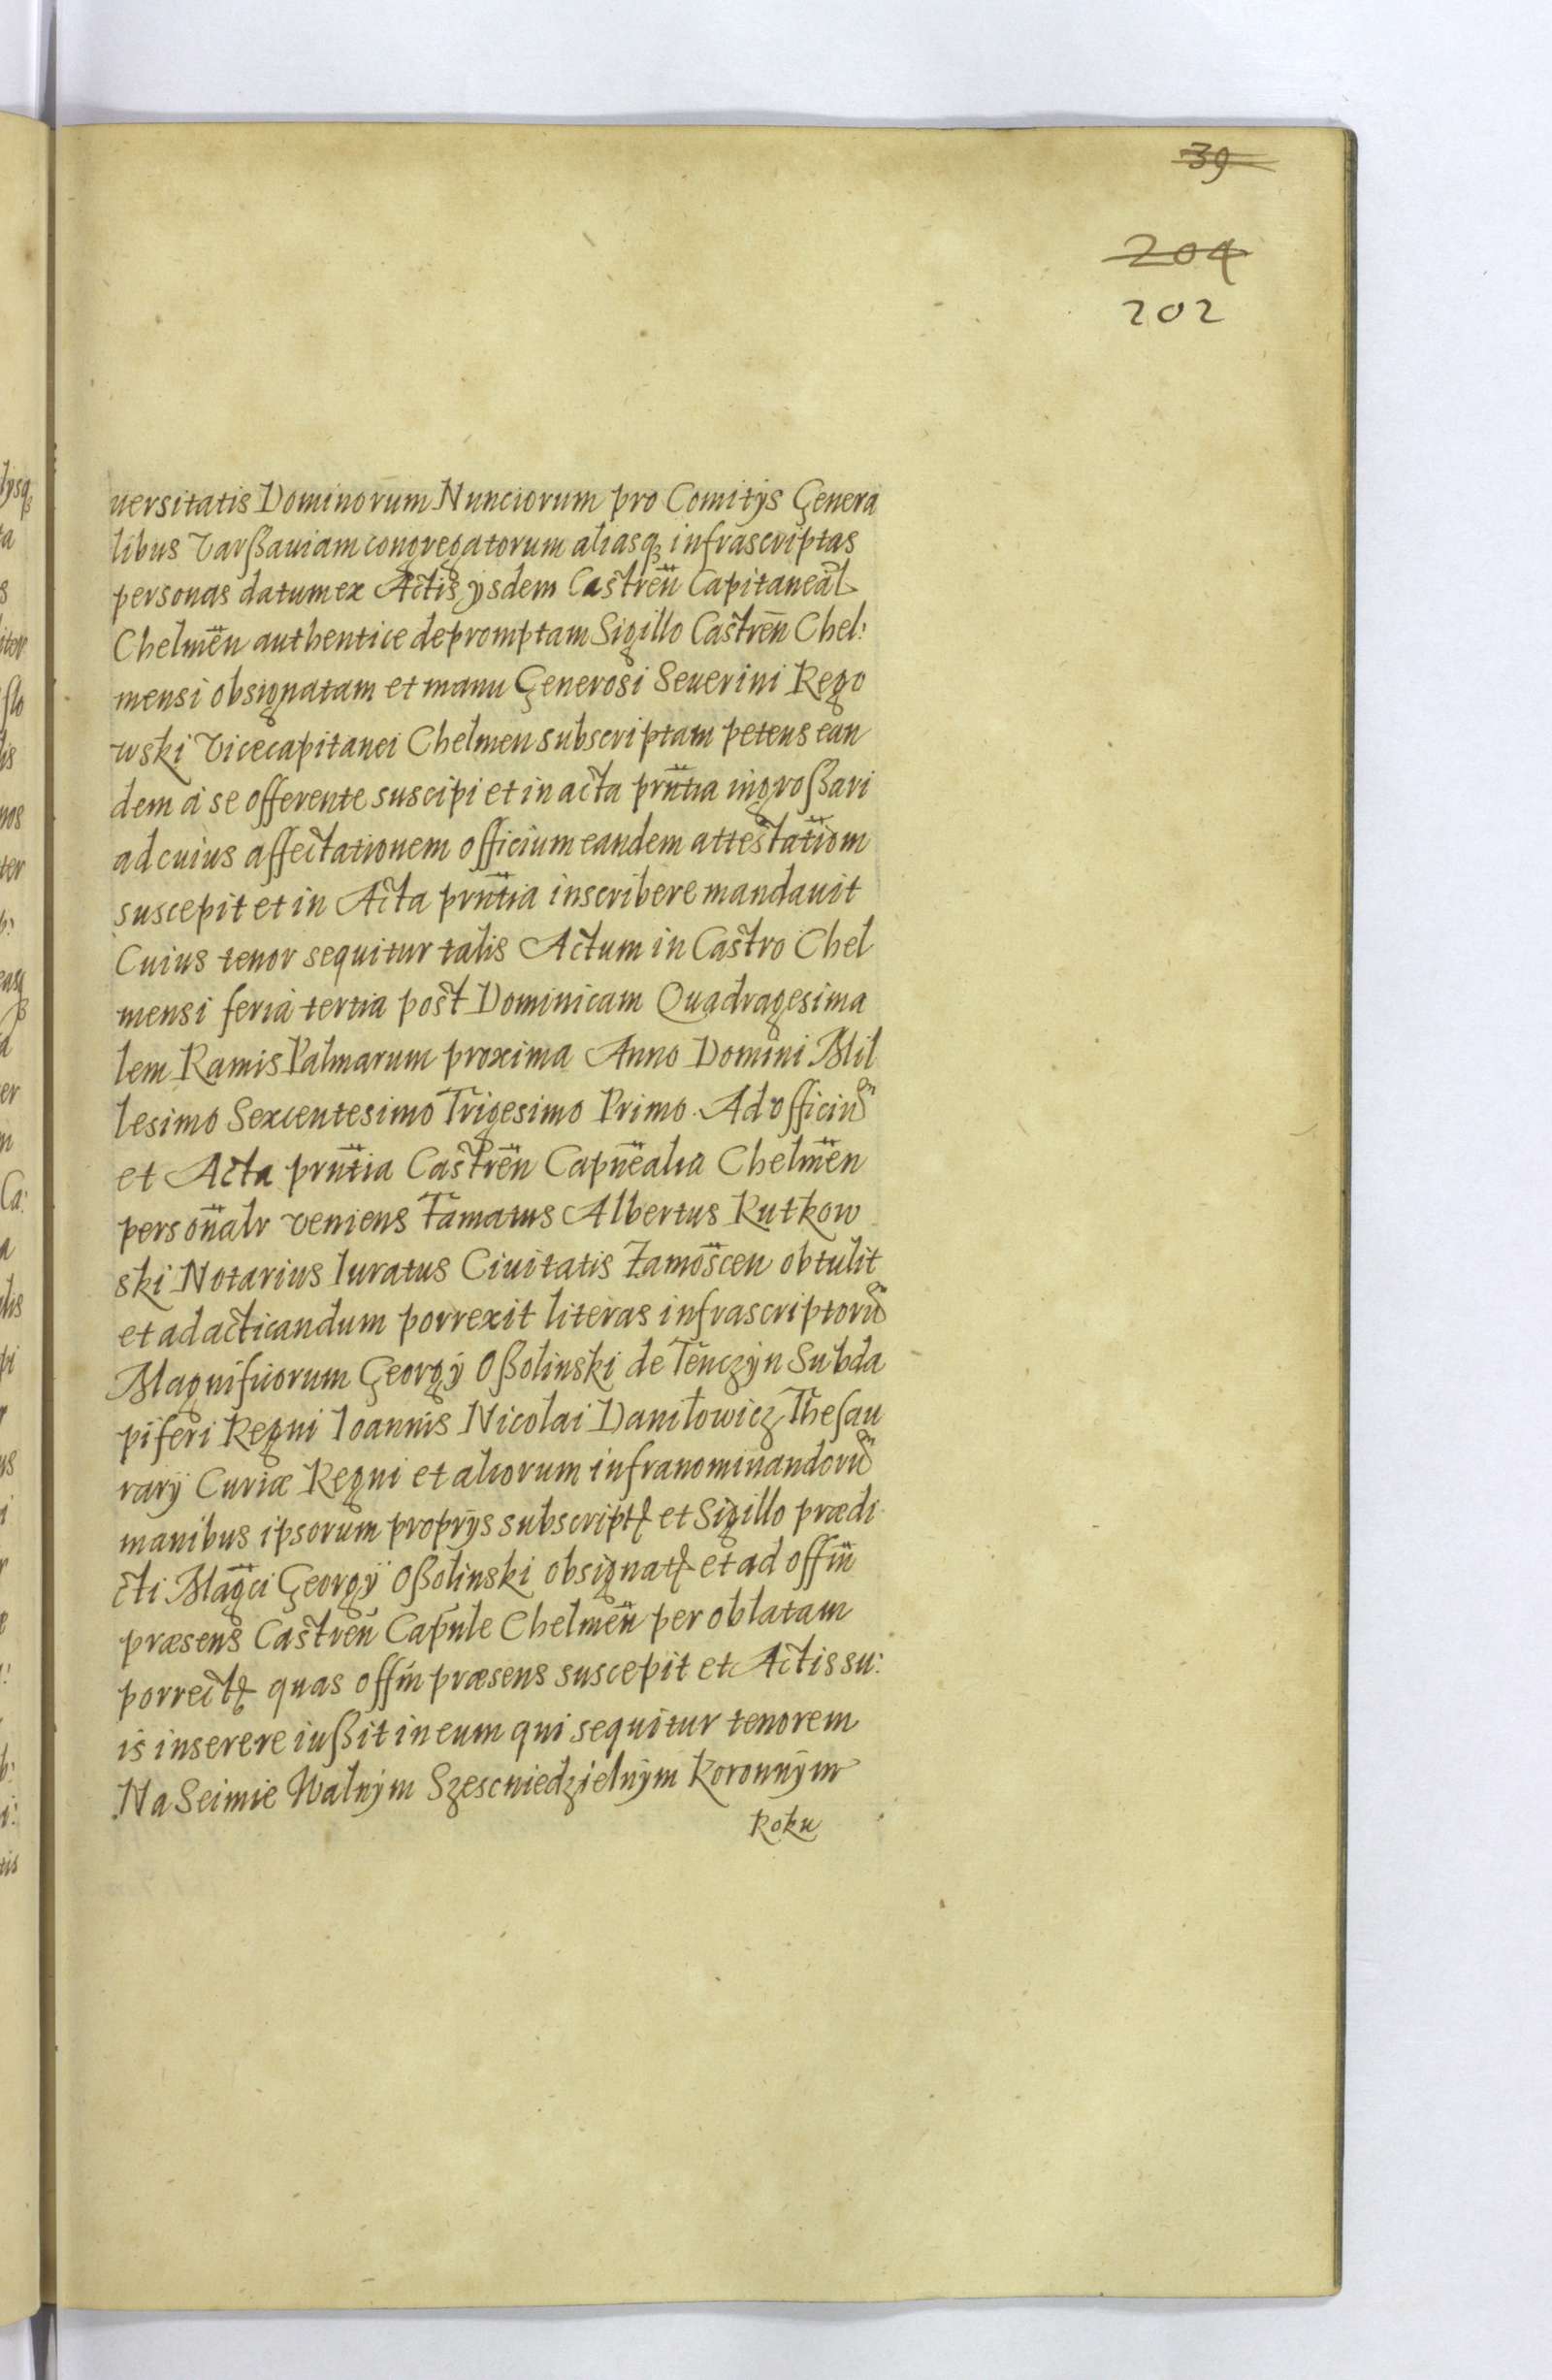 39
204
202
uersitatis Dominorum Nunciorum pro Comitÿs Genera
libus Varßauiam congregatorum aliasq₃ infrascriptas
personas datum ex Actis ÿsdem Castren̄ Capitaneal
Chelmen̄ authentice depromptam Sigillo Castren̄ Chel:
mensi obsignatam et manu Generosi Seuerini Rego
wski Vicecapitanei Chelmen subscriptam petens ean
dem á se offerente suscipi et in acta prn̄tia ingroßari
ad cuius affectationem officium eandem attestatiōm
suscepit et in Acta prn̄tia inscribere mandauit
Cuius tenor sequitur talis Actum in Castro Chel
mensi feriá tertia post Dominicam Quadragesima
lem Ramis Palmarum proxima Anno Domini Mil
lesimo Sexcentesimo Trigesimo Primo. Ad officiuᵐ
et Acta prn̄tia Castren̄ Capn̄ealia Chelmen̄
person̄alr veniens Famatus Albertus Rutkow
ski Notarius Iuratus Ciuitatis Zamos̄cen obtulit
et adacticandum porrexit literas infrascriptoruᵐ
Magnificorum Georgÿ Oßolinski de Tenczÿn Subda
piferi Regni Ioannis Nicolai Daniłowicz Thesau
rarÿ Curiæ Regni et aliorum infranominandoruᵐ
manibus ipsorum proprÿs subscriptꝭ et Sigillo prædi
cti Mag̅ci Georgÿ Oßolinski obsignatꝭ et ad offin̄
præsens Castren̄ Capn̄le Chelmen̄ per oblatam
porrectꝭ quas offm̄ præsens suscepit et Actis su:
is inserere iußit in eum qui sequitur tenorem
Na Seimie Walnÿm Szescniedzielnÿm Koronnÿm
Roku